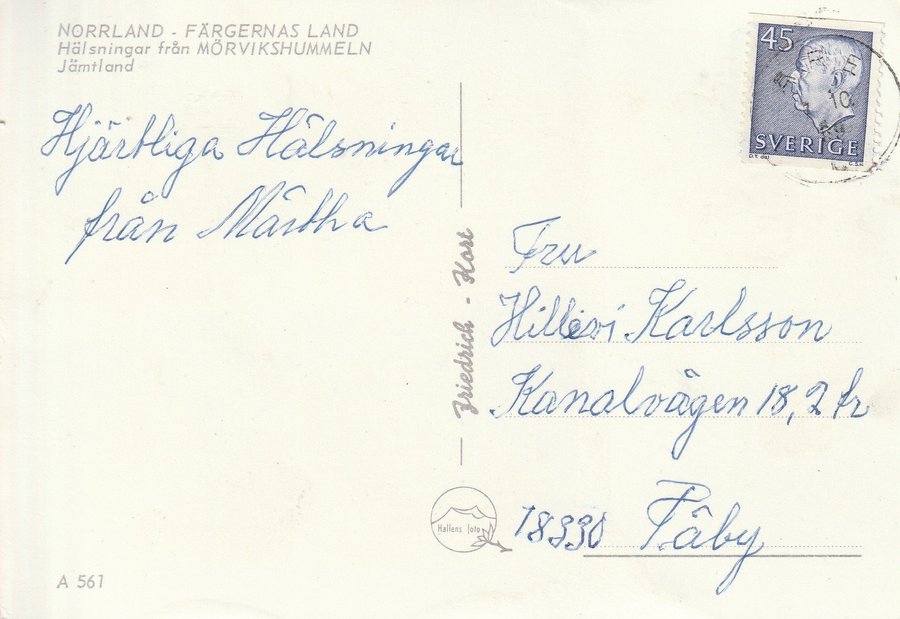 NORRLAND - FÄRGERNAS LAND
Hälsningar från MÖRVIKSHUMMELN
Jämtland
45
SVERIGE
10.
Hjärtliga Hälsningar
från Märtha
Friedrich - Kort
Fru
Hillevi Karlsson
Kanalvägen 18, 2 tr
18330 Täby
Hallens foto
A 561